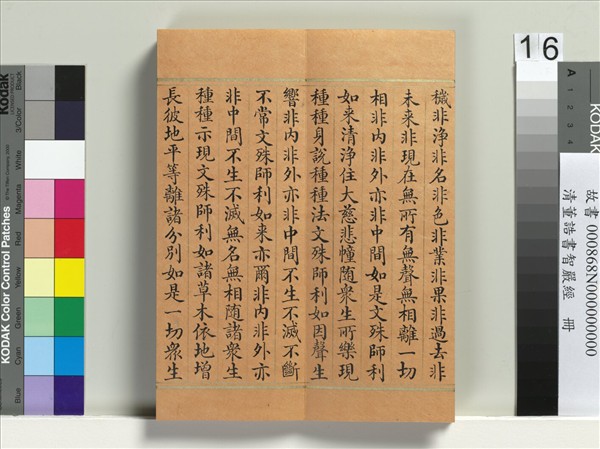 穢非淨非名非色非業非果非過去非
未来非現在無所有無聲無相離一切
相非内非外亦非中間如是文殊師利
如来清淨住大慈悲幢随衆生所樂現
種種身說種種法文殊師利如因聲生
響非内非外亦非中間不生不滅不斷
不常文殊師利如来亦爾非内非外亦
非中間不生不滅無名無相随諸衆生
種種示現文殊師利如諸草木依地增
長彼地平等離諸分別如是一切衆生
16
故書 000868N000000000
清董誥書智嚴經 冊
KODAK Color Control Patches
Kodak
Blue
Cyan
Green
Yellow
Red
Magenta
White
3/Color
Black
A
1
2
3
4
KODAK